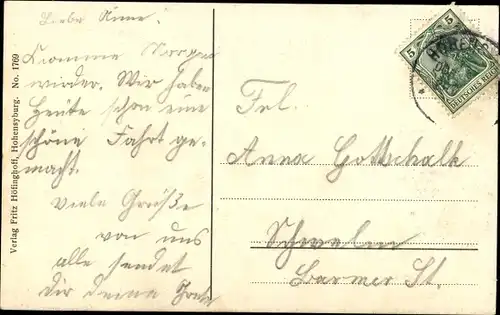 Liebe Anna!
Komme Morgen
wieder. Wir haben
Heute schon eine
schöne Fahrt ge-
macht.
Viele Grüße
von uns
alle sendet
Dir deine Grete
Verlag Fritz Höfinghoff, Hohensyburg. No. 1769
Frl.
Anna Gottschalk
Schwelm
Barmer St.
5
5
DEUTSCHES REICH
HOHENSY